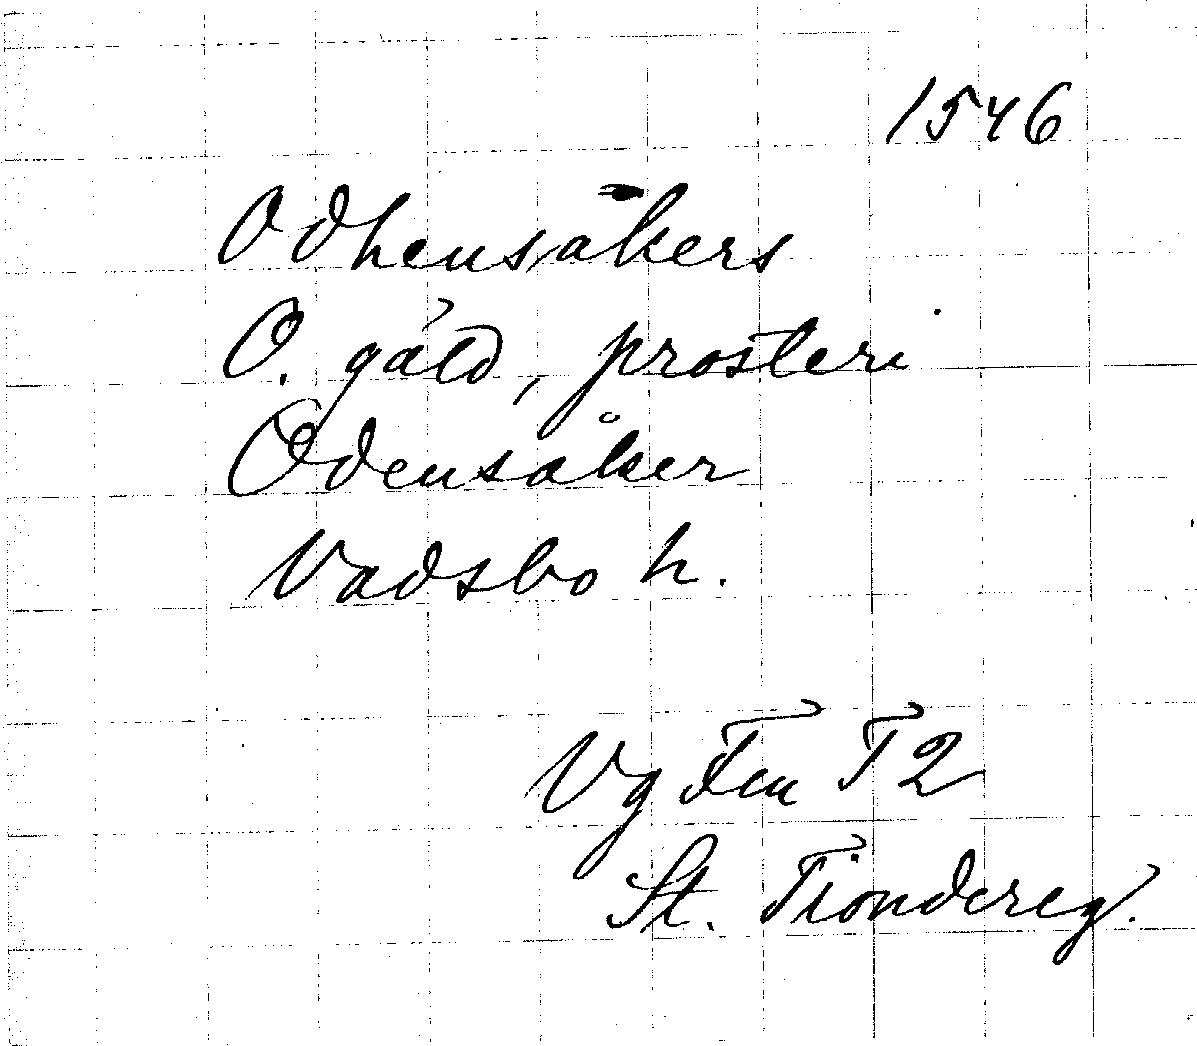 1546
Odhensåkers
O. gäld, prosteri
Odensåker
Vadsbo h.
Vg Fen T 2
St. Tiondereg.